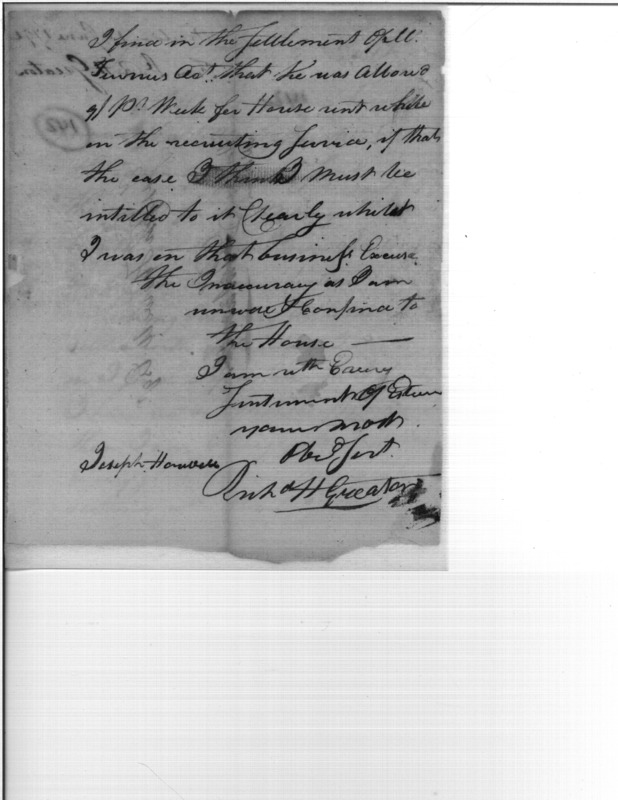 I find in the Settlement of M.
Act. that he was Allowd
9/ Pr. Week for House rent while
in the recruiting Service, if thats
the case I think I must be
intitled to it Clearly whilst
I was in that business. Excuse
the Inaccuracy as I am
unwell & Confind to
the House —
I am with Every
Sentiment of Esteem
your most
Obedt. Sert.
Joseph Howell
Richd H Greaton
Greaton